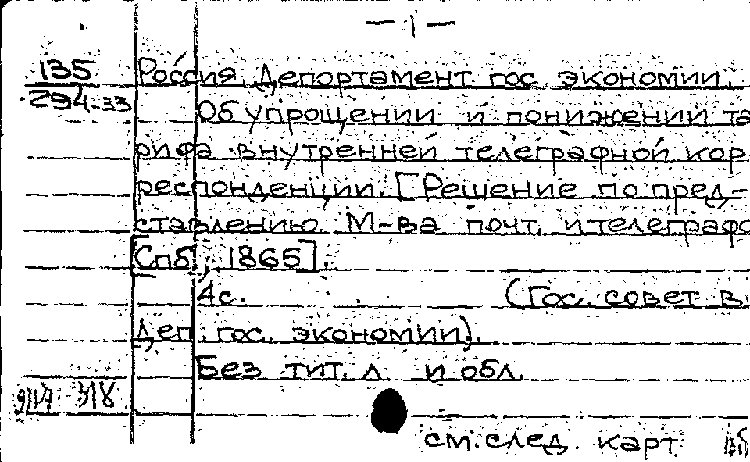 — 1 —
135 Россия. Департамент гос. экономии.
294-33 Об упрощении и понижении та
рифа внутренней телеграфной кор
респонденции. [Решение по пред-
ставлению М-ва почт. и телеграфо
[Спб., 1865].
4с. (Гос. совет в.
Деп. гос. экономии).
Без тит. л. и обл.
318
см. след. карт